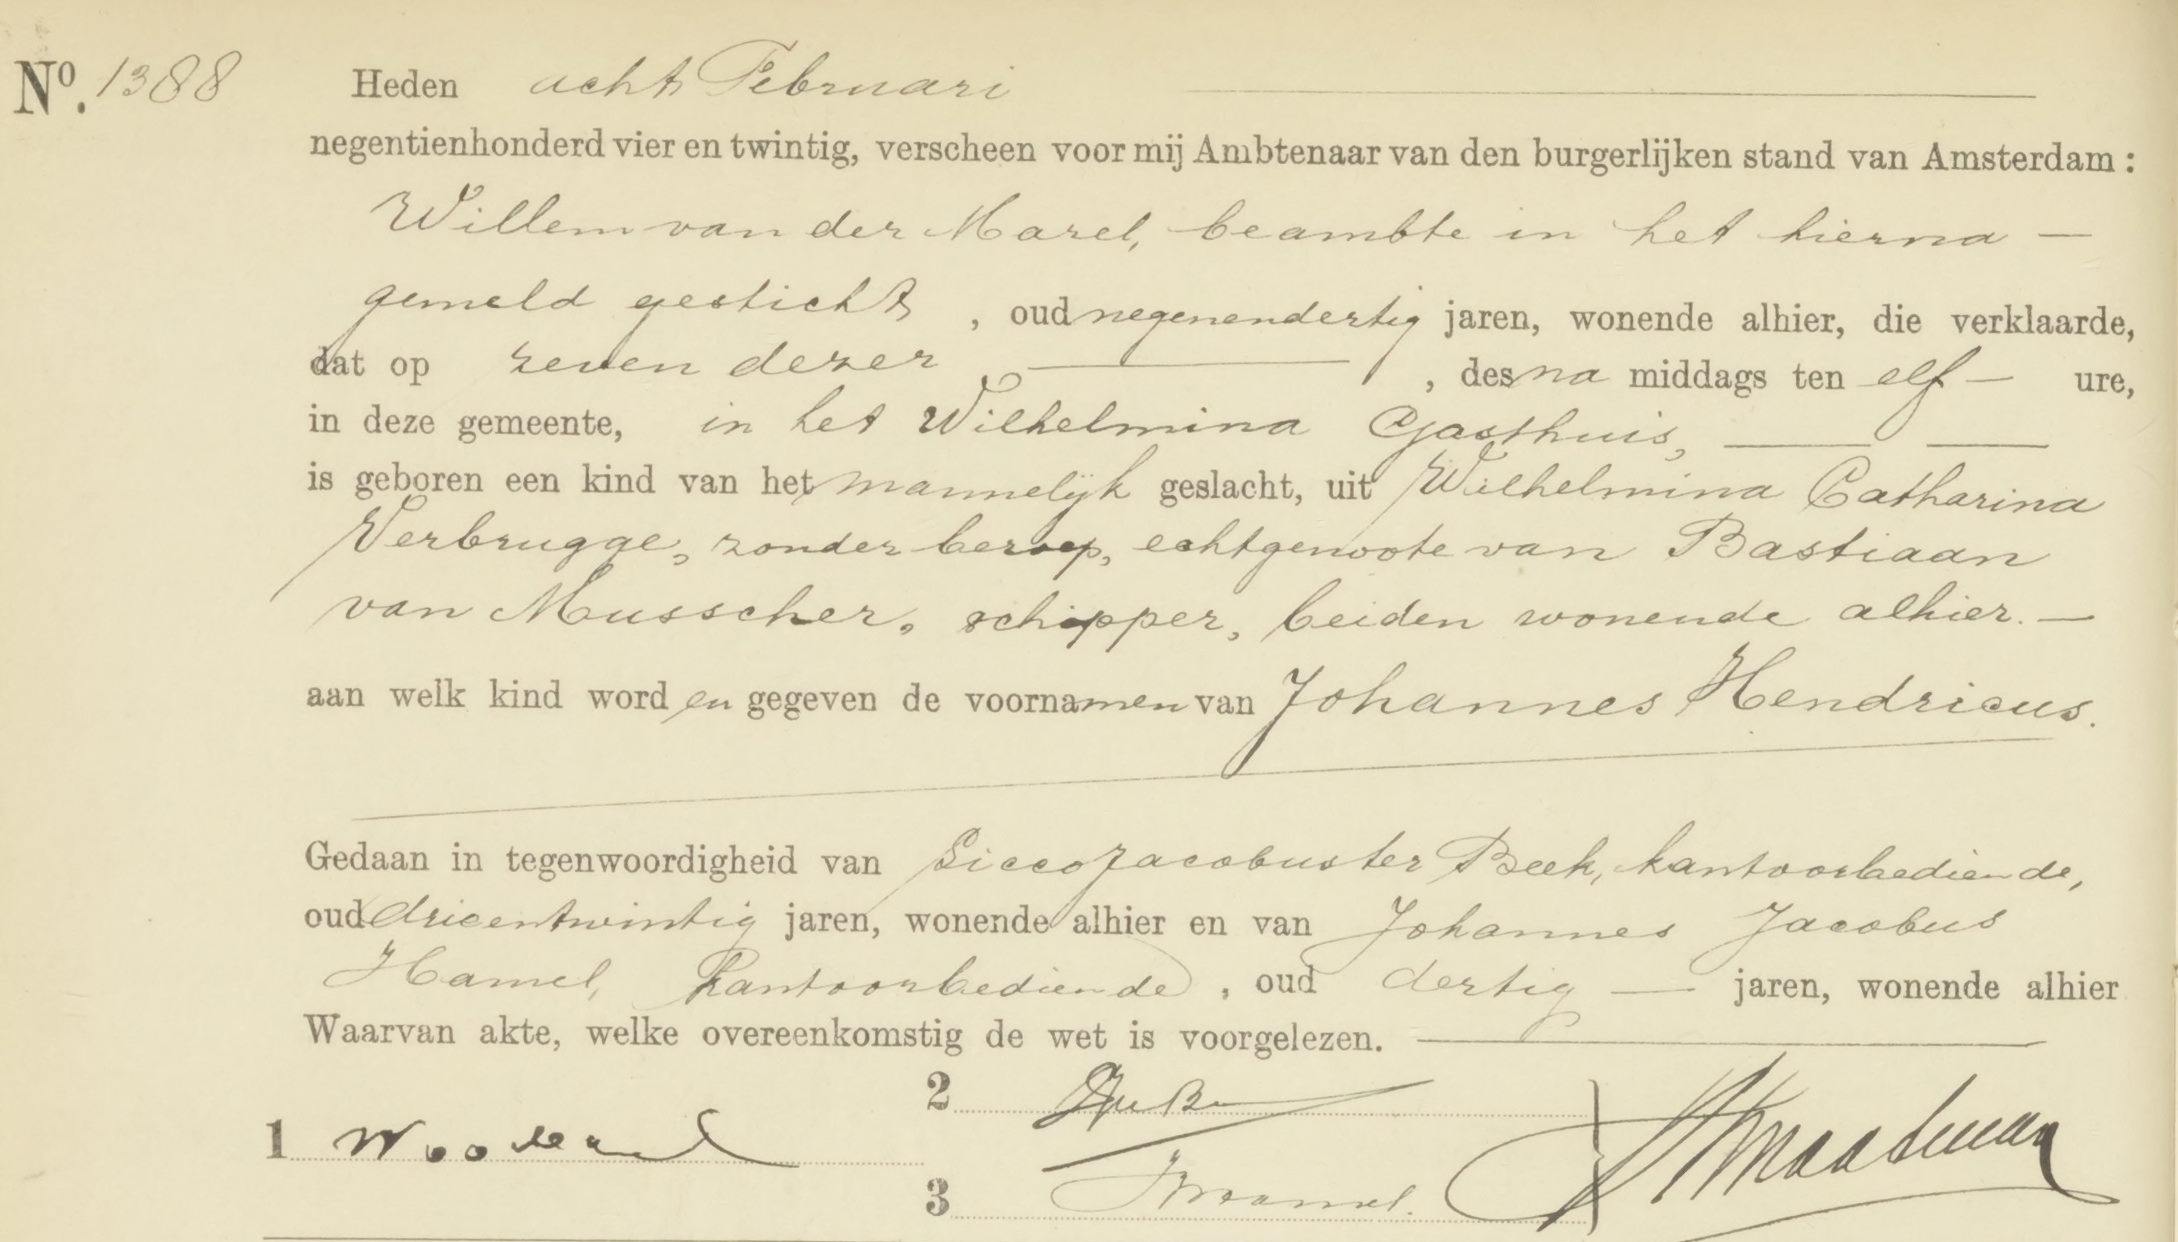 No. 1388 Heden acht Februari
negentienhonderd vier en twintig, verscheen voor mij Ambtenaar van den burgerlijken stand van Amsterdam :
Willem van der Marel, beambte in het hierna —
gemeld gesticht, , oud negenendertig jaren, wonende alhier, die verklaarde,
dat op zeven dezer , des na middags ten elf — ure,
in deze gemeente, in het Wilhelmina Gasthuis,
is geboren een kind van het mannelijk geslacht, uit Wilhelmina Catharina
Verbrugge, zonder beroep, echtgenoote van Bastiaan
van Musscher, schipper, beiden wonende alhier. —
aan welk kind word en gegeven de voornamen van Johannes Hendricus.
Gedaan in tegenwoordigheid van Sicco Jacobus ter Beek, kantoorbediende,
oud drieentwintig jaren, wonende alhier en van Johannes Jacobus
Hamel, kantoorbediende , oud dertig — jaren, wonende alhier
Waarvan akte, welke overeenkomstig de wet is voorgelezen.
2
1
3